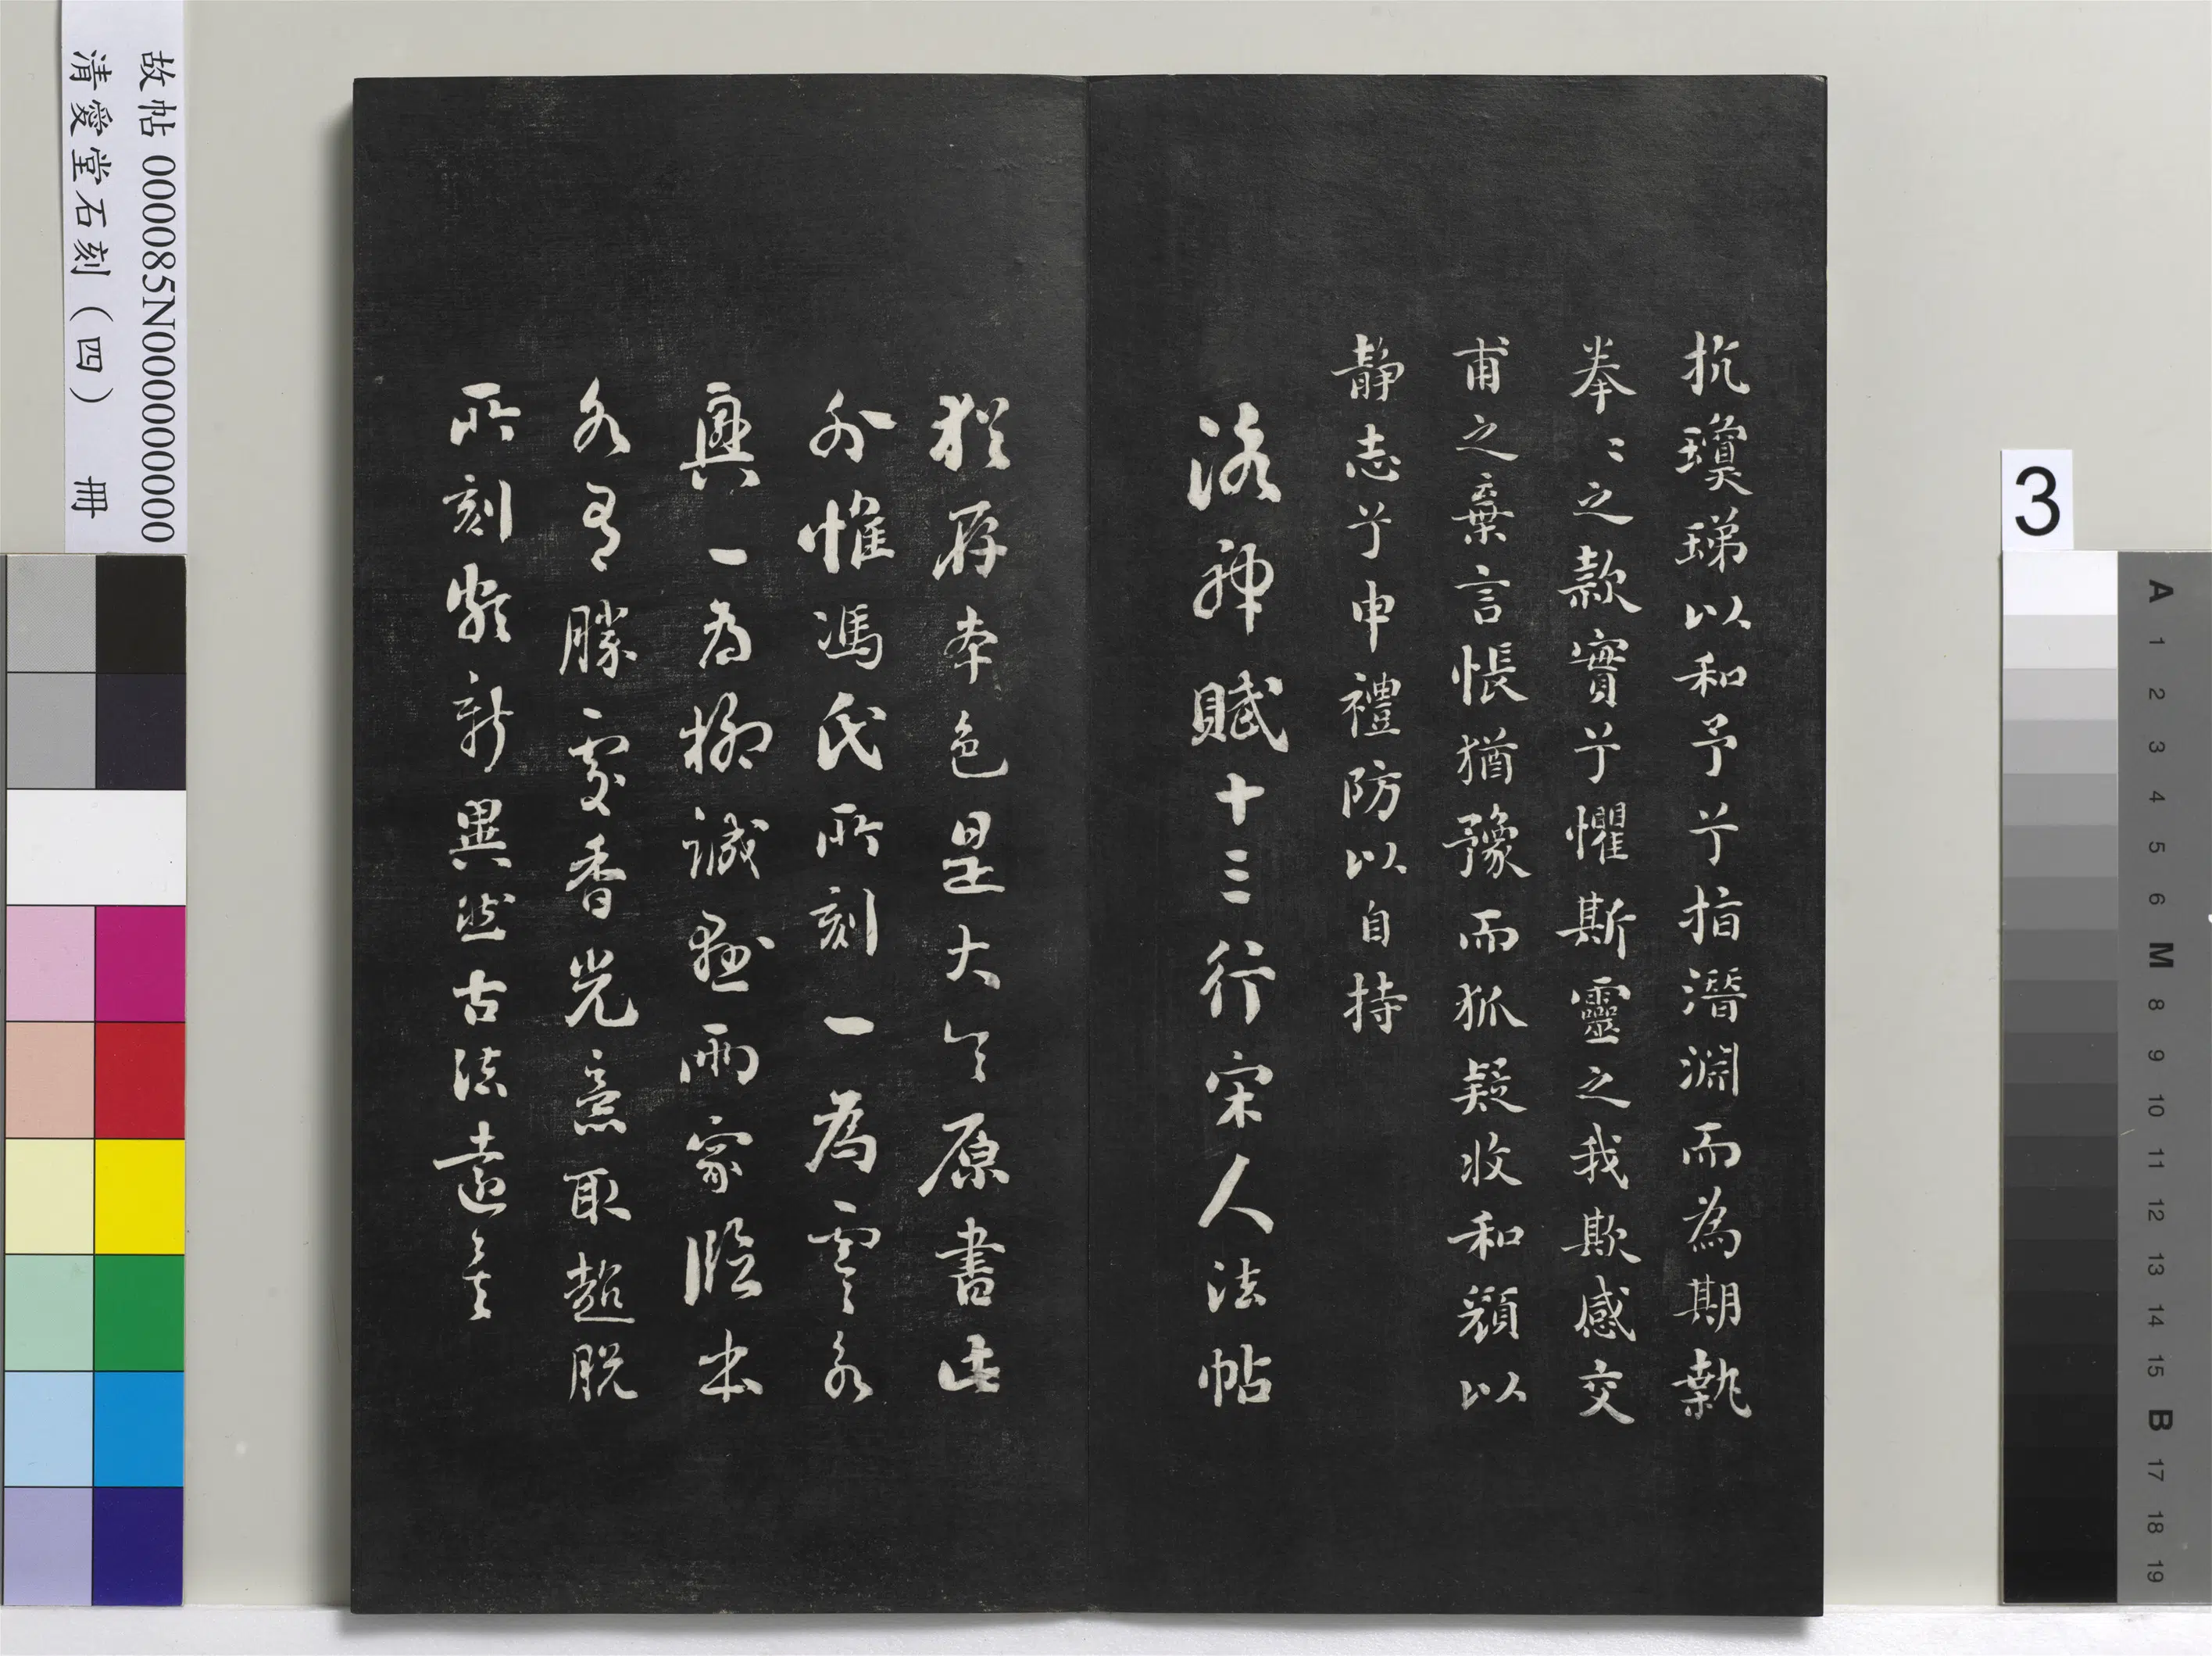 抗瓊珶以和予兮指潛淵而為期執
拳〻之款實兮懼斯靈之我欺感交
甫之棄言悵猶豫而狐疑收和顏以
靜志兮申禮防以自持
洛神賦十三行宋人法帖
猶存本色是大令原書此
外惟馮氏所刻一為虞永
興一為柳誠懸兩家臨本
各有勝處香光意取超脫
所刻頗新異然古法遠矣
故帖 000085N000000000
清愛堂石刻（四） 冊
3
A 1 2 3 4 5 6 M 8 9 10 11 12 13 14 15 B 17 18 19